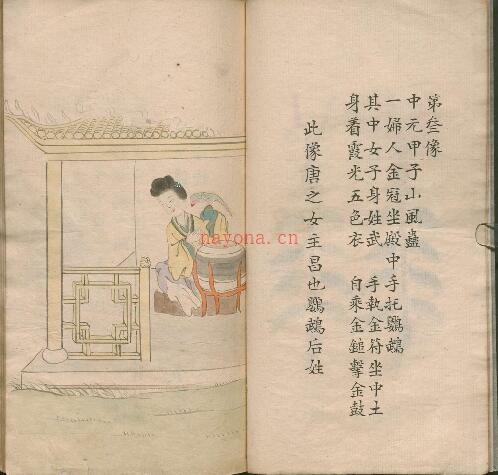 第叁像
中元甲子山風蠱
一婦人金冠坐殿中手托鸚鵡
其中女子身姓武　手執金符坐中土
身着霞光五色衣　自乘金鎚擊金鼓
此像唐之女主昌也鸚鵡后姓
nayona.cn